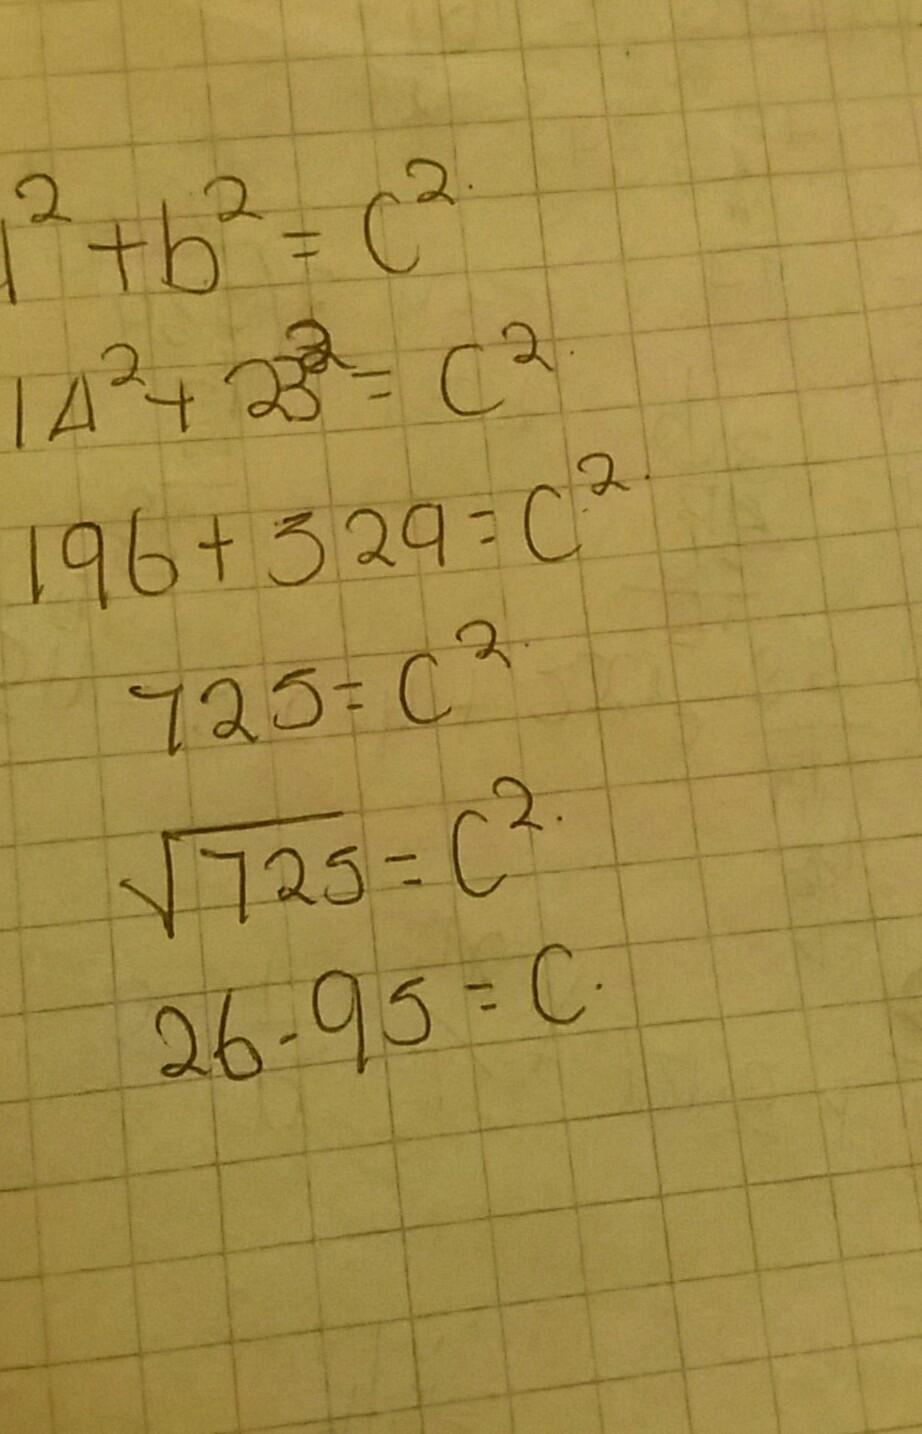 a² + b² = C²
14² + 23² = C²
196 + 529 = C²
725 = C²
√725 = C²
26.95 = C.